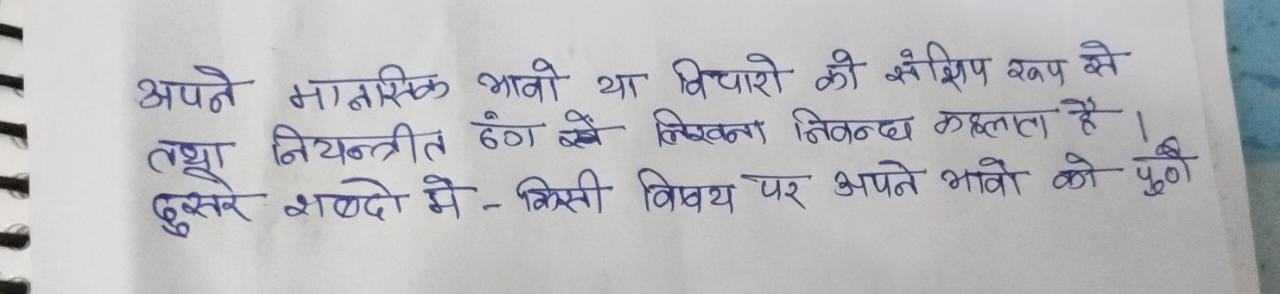 अपने मानसिक भावो या विचारो को संक्षिप रूप से
तथा नियन्त्रीत ढंग से लिखना निबन्ध कहलाता है।
दुसरे शब्दो में - किसी विषय पर अपने भावो को पुर्ण